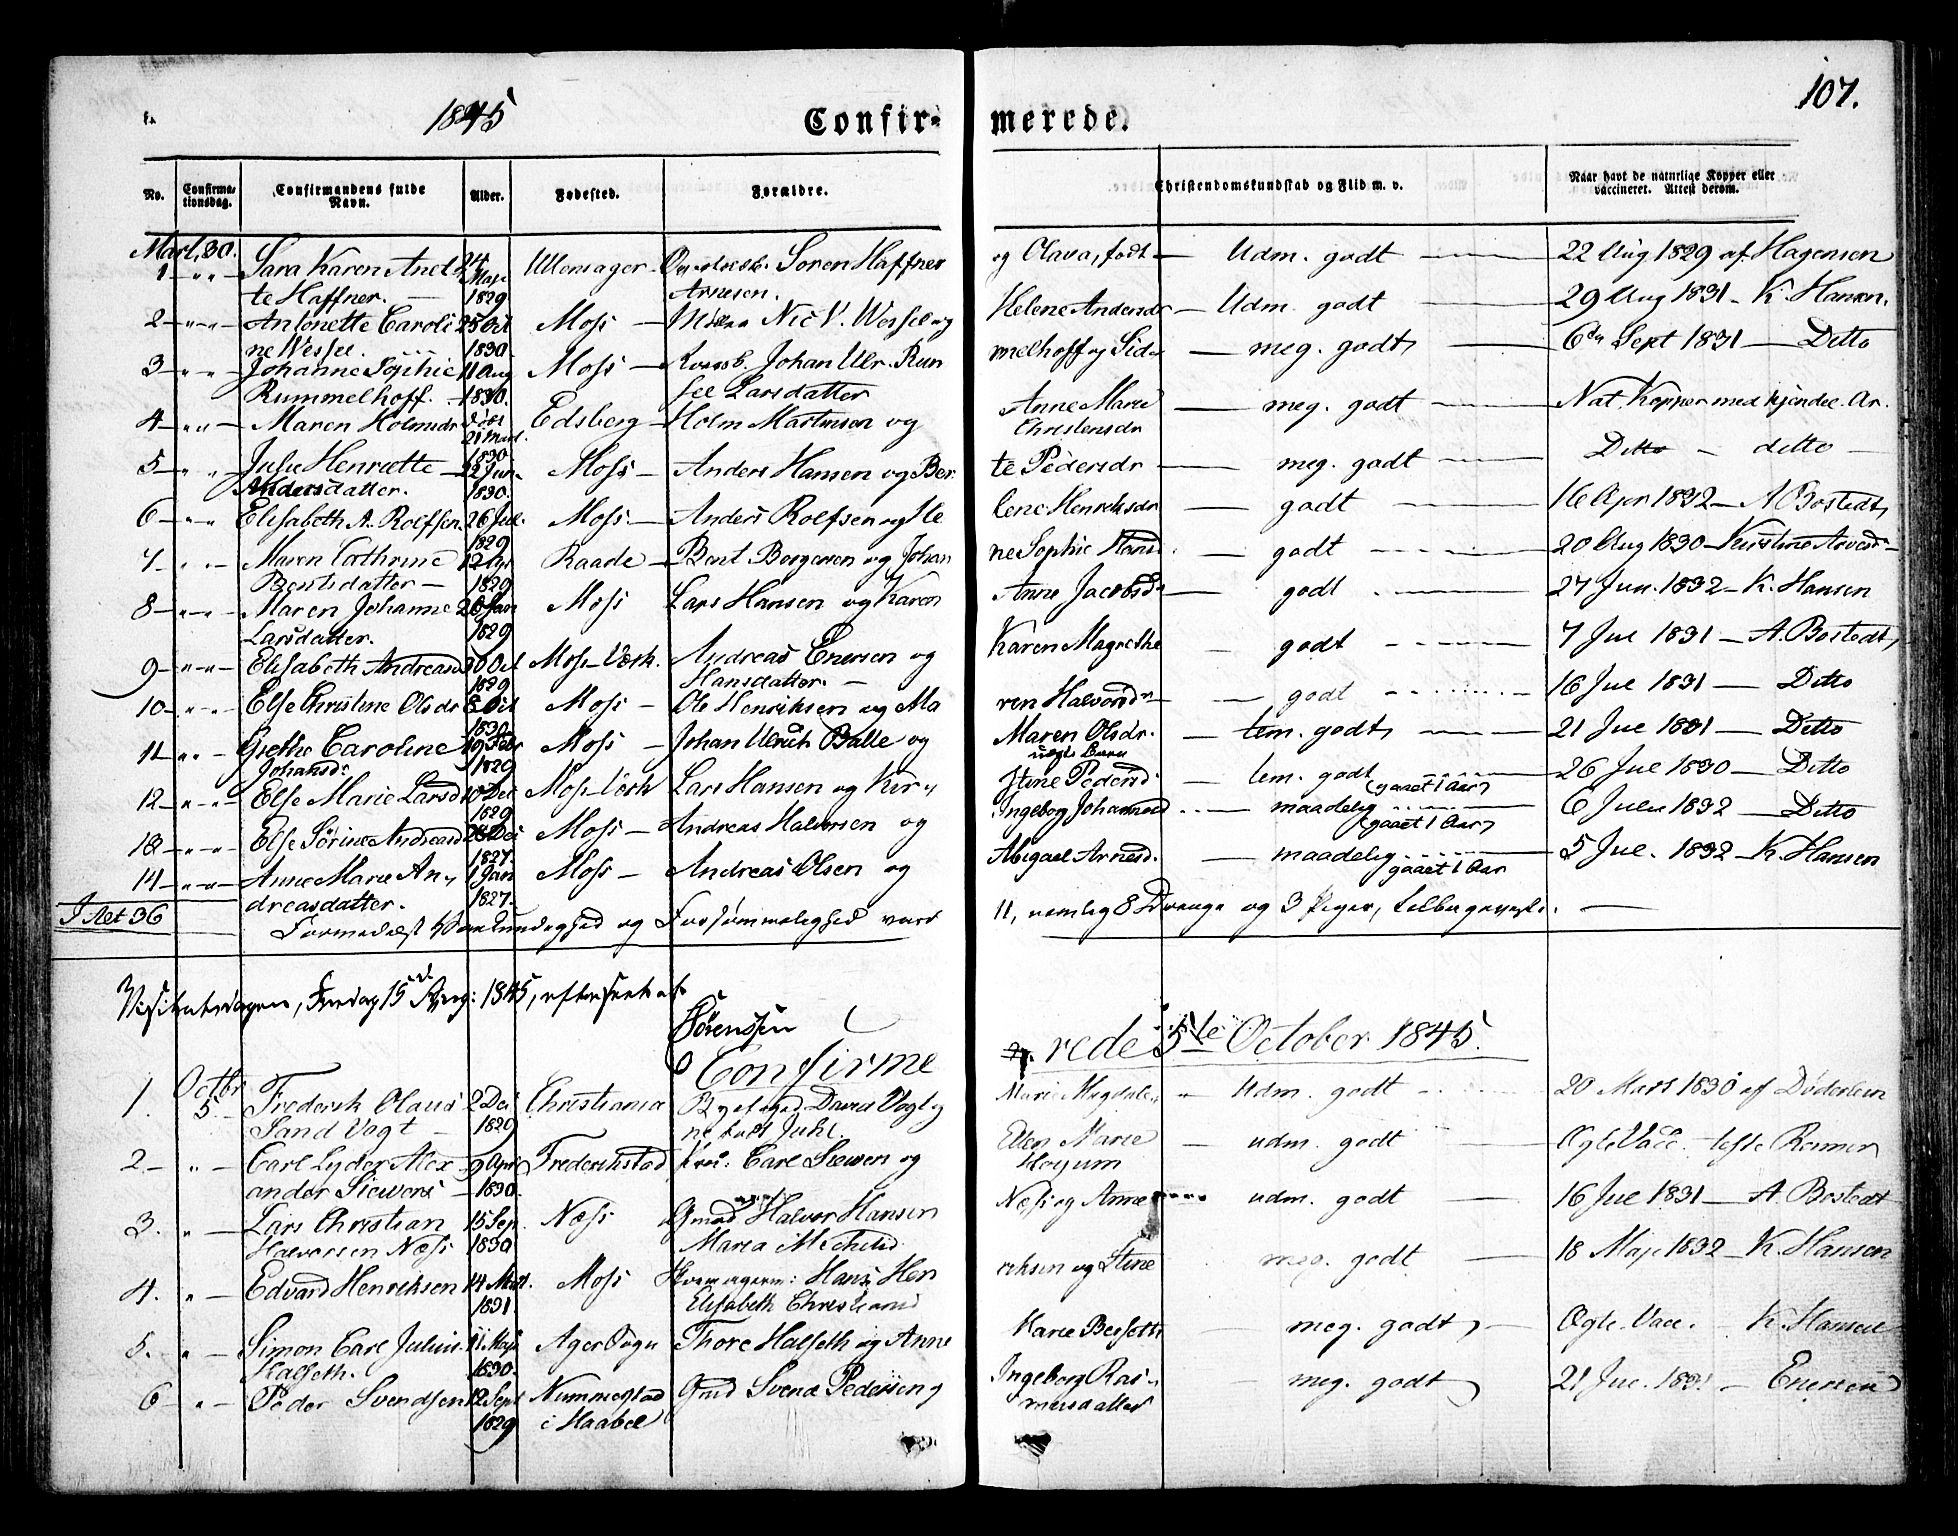 1845
Confir-
merede.
107.
No.
Confirma-
tionsdag.
Confirmandens fulde
Navn.
Alder.
Fødested.
Forældre.
Christendomskundskab og Flid m. v.
Naar havt de naturlige Kopper eller
vaccineret. Attest derom.
Mart, 30.
1 Sara Karen Anet 24 Ullensager Søren Haffner og Olava, født Udm. godt 22 Aug 1829 af Hagensen
te Haffner. Maji 1829 Arnesen.
2 Antonette Caroli 25 Oct Moss Nic V. Wessel og Helene Andersdr Udm. godt 29 Aug 1831 K. Hansen.
ne Wessel. 1830
3 Johanne Sophie 11 Aug Moss Johan Ulr. Rum melhoff og Sid meg. godt 6 Sept 1831 Ditto
Rummelhoff. 1830. sel Larsdatter
4 Maren Holmsdr Edsberg Holm Martinsen og Anne Marie meg. godt Nat. Kopper med kjendel. Ar.
21 Mart. 1830 Christensdr
5 Julie Henriette 22 Jun. Moss Anders Hansen og Ber te Pedersdr meg. godt Ditto ditto
Andersdatter. 1830.
6 Elisabeth A. Rolfsen 26 Jul. Moss Anders Rolfsen og He lene Henriksdr godt 16 Apr 1832 A Bostedt
1829
7 Maren Cathrine 12 Apr Raade Bent Borgersen og Johan ne Sophie Hansd. godt 20 Aug 1830
Bentsdatter 1829
8 Maren Johanne 26 Jan Moss Lars Hansen og Karen Anne Jacobsd godt 27 Jun. 1832 K. Hansen
Larsdatter. 1829
9 Elisabeth Andreasd 30 Oct Moss Værk. Andreas Enersen og Karen Magrethe godt 7 Jul 1831 A. Bostedt
1829 Hansdatter.
10 Else Christine Olsdr 8 Oct Moss Ole Henriksen og Ma ren Halvorsd godt 16 Jul 1831 Ditto
1830
11 Grethe Caroline 19 Febr Moss Johan Ulrich Balle og Maren Olsdr. tem. godt 21 Jul 1831 Ditto
Johansd. 1829 uægte Barn
12 Else Marie Larsd 10 Dec Moss Værk Lars Hansen og Kir Stine Pedersd. tem. godt 26 Jul 1830 Ditto
1829 (gaaet 1 Aar)
13 Else Sørine Andreasd 28 Dec Moss Andreas Halvorsen og Ingeborg Johannesd maadelig 6 Julii 1832 Ditto
1827. (gaaet 1 Aar)
14 Anne Marie An 1 Jan Moss Andreas Olsen og Abigael Arnesd. maadelig 5 Jul. 1832 K. Hansen
dreasdatter. 1827. gaaet 1 Aar
I Alt 36
Formedelst Vankundighed og Forsømmelighed vare 11, nemlig 8 Drenge og 3 Piger, tilbageviste.
Visitatsdagen, Fredag 15 Aug: 1845, efterseet af
Sørenssen
Confirme
rede 5te October 1845.
Octbr
1. 5 Frederik Olaus 2 Dec Christiania David Vogt og Marie Magdale Udm. godt 20 Mart 1830 af Døderlein
Sand Vogt 1829 ne født Juhl.
2 Carl Lyder Alex 9 Apr Frederikstad Carl Siewers og Ellen Marie udm. godt Ogl. Vacc. Reimer
ander Siewers 1830. Høyum
3. Lars Christian 15 Sep. Næss Gmd Halvor Hansen Næss og Anne udm. godt 16 Jul 1831 A. Bostedt
Halvorsen Næss 1830 Maria Mechelsd
4. Edvard Henriksen 14 Mart. Moss Hans Hen riksen og Stine meg. godt 18 Maji 1832 K. Hansen
1831 Elisabeth Christiansd
5. Simon Carl Julius 11 Maji Ager Sogn Thore Halseth og Anne Karie Berseth meg. godt Ogl. Vacc. K. Hansen
Halseth. 1830.
6 Peder Svendsen 12 Sept Nummestad Gmd Svend Pedersen og Ingeborg Ras meg. godt 21 Jul. 1831 Enersen
1829 i Haabøl musdatter